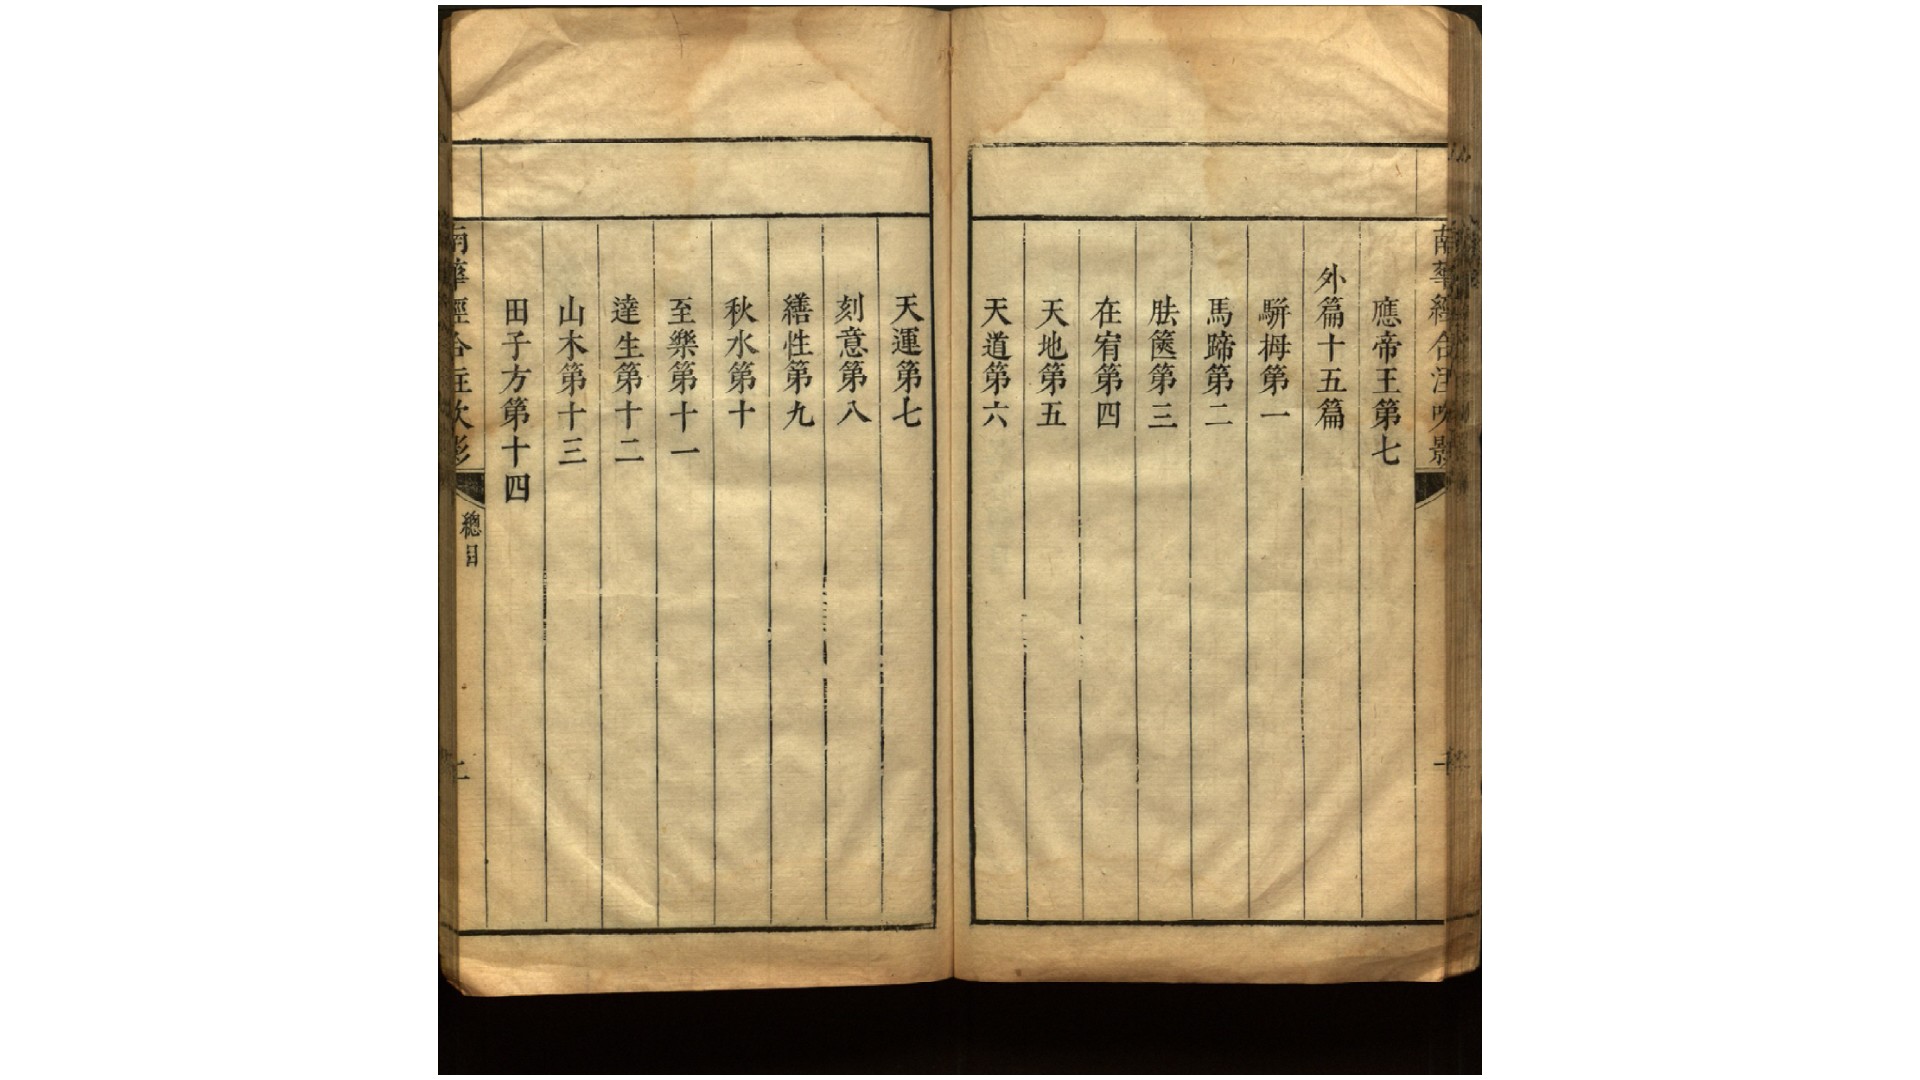 南華經合注吹影
應帝王第七
外篇十五篇
駢拇第一
馬蹄第二
胠篋第三
在宥第四
天地第五
天道第六
天運第七
刻意第八
繕性第九
秋水第十
至樂第十一
達生第十二
山木第十三
田子方第十四
南華經合注吹影
總目
二